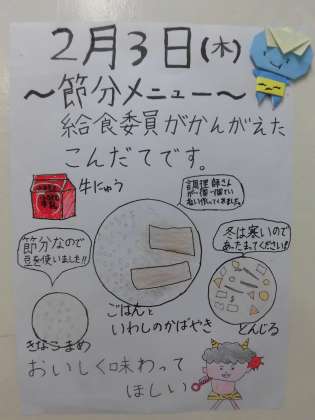 2月3日(木)
～節分メニュー～
給食委員がかんがえた
こんだてです。
牛にゅう
調理師さん
が一個一個てい
ねいに作ってくれました。
節分なので
豆を使いました!!
冬は寒いので
あたまってください!!
ごはんと
いわしのかばやき
きなこまめ
とんじる
おいしく味わって
ほしい